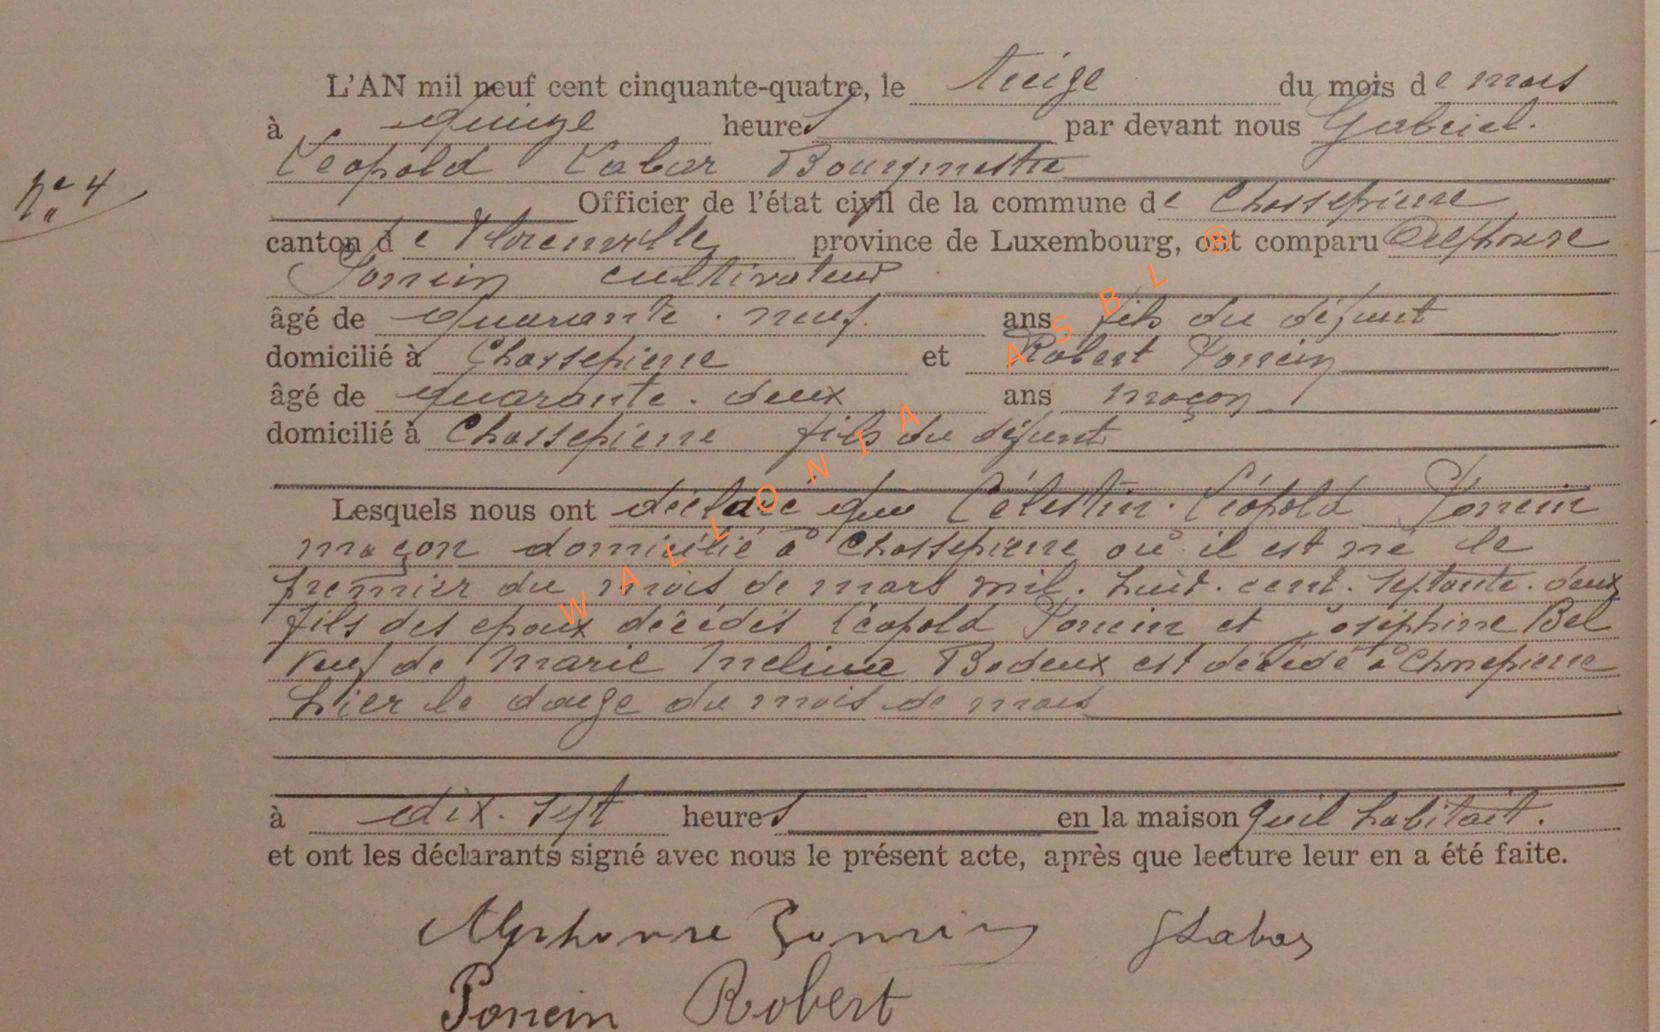 L'AN mil neuf cent cinquante-quatre, le treize du mois de mars
à quinze heures par devant nous Gabriel.
Léopold Labar Bourgmestre
N° 4
Officier de l'état civil de la commune de Chassepierre
canton de Florenville province de Luxembourg, ont comparu Alphonse
Poncin cultivateur
âgé de quarante. neuf. ans fils du défunt
domicilié à Chassepierre et Robert Poncin
âgé de quarante. deux ans maçon
domicilié à Chassepierre fils du défunt
Lesquels nous ont déclaré que Célestin. Léopold Poncin
maçon domicilié à Chassepierre où il est né le
premier du mois de mars mil. huit. cent. septante. deux
fils des epoux décédés Léopold Poncin et Joséphine Bel
veuf de Marie Melina Bodeux est décédé à Chassepierre
hier le douze du mois de mars
à dix. sept heures en la maison qu'il habitait.
et ont les déclarants signé avec nous le présent acte, après que lecture leur en a été faite.
Alphonse Poncin GLabar
Poncin Robert
WALLONIA ASBL ®